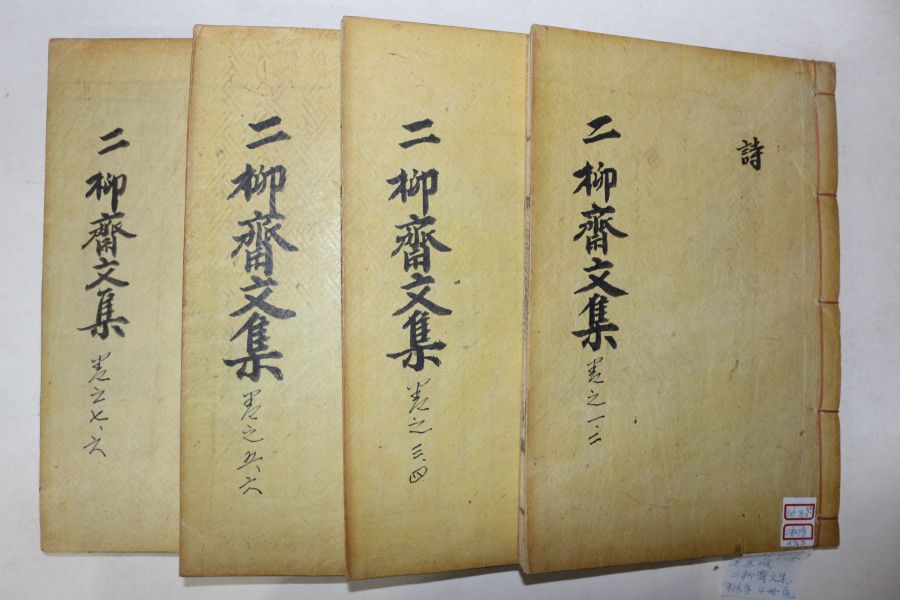 詩
二柳齋文集
卷之一、二
二柳齋文集
卷之三、四
二柳齋文集
卷之五、六
二柳齋文集
卷之七、六
二柳齋文集